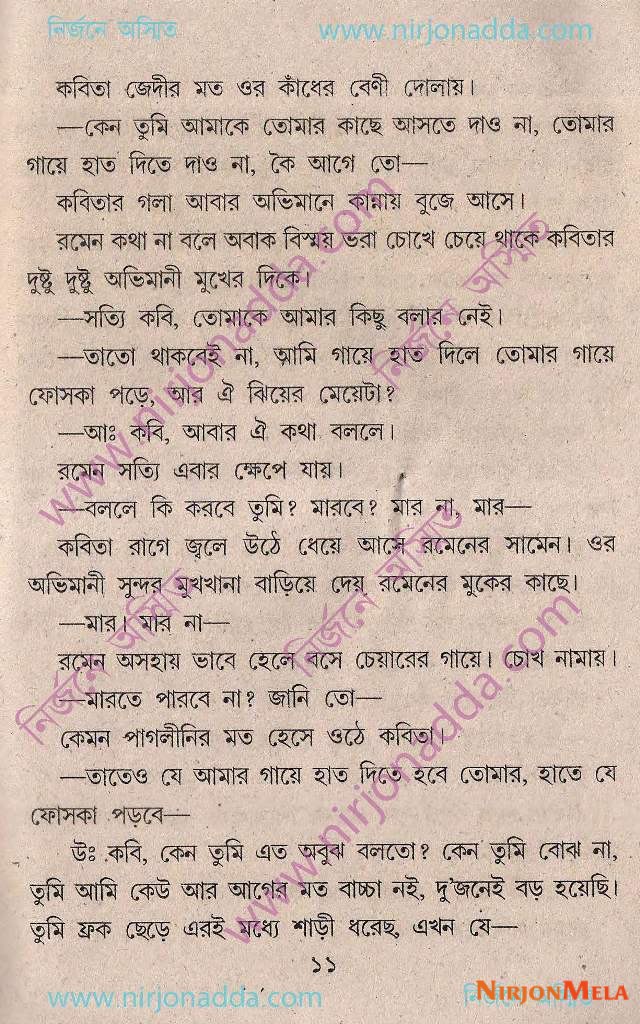 নির্জনে অস্মিত www.nirjonadda.com
কবিতা জেদীর মত ওর কাঁধের বেণী দোলায়।
—কেন তুমি আমাকে তোমার কাছে আসতে দাও না, তোমার
গায়ে হাত দিতে দাও না, কৈ আগে তো—
কবিতার গলা আবার অভিমানে কান্নায় বুজে আসে।
রমেন কথা না বলে অবাক বিস্ময় ভরা চোখে চেয়ে থাকে কবিতার
দুষ্টু দুষ্টু অভিমানী মুখের দিকে।
—সত্যি কবি, তোমাকে আমার কিছু বলার নেই।
—তাতো থাকবেই না, আমি গায়ে হাত দিলে তোমার গায়ে
ফোসকা পড়ে, আর ঐ ঝিয়ের মেয়েটা?
—আঃ কবি, আবার ঐ কথা বললে।
রমেন সত্যি এবার ক্ষেপে যায়।
—বললে কি করবে তুমি? মারবে? মার না, মার—
কবিতা রাগে জ্বলে উঠে ধেয়ে আসে রমেনের সামেন। ওর
অভিমানী সুন্দর মুখখানা বাড়িয়ে দেয় রমেনের মুকের কাছে।
—মার। মার না—
রমেন অসহায় ভাবে হেলে বসে চেয়ারের গায়ে। চোখ নামায়।
—মারতে পারবে না? জানি তো—
কেমন পাগলীনির মত হেসে ওঠে কবিতা।
—তাতেও যে আমার গায়ে হাত দিতে হবে তোমার, হাতে যে
ফোসকা পড়বে—
উঃ কবি, কেন তুমি এত অবুঝ বলতো? কেন তুমি বোঝ না,
তুমি আমি কেউ আর আগের মত বাচ্চা নই, দু'জনেই বড় হয়েছি।
তুমি ফ্রক ছেড়ে এরই মধ্যে শাড়ী ধরেছ, এখন যে—
১১
www.nirjonadda.com NIRJONMELA
www.nirjonadda.com
নির্জনে অস্মিত
নির্জনে অস্মিত
নির্জনে অস্মিত
www.nirjonadda.com